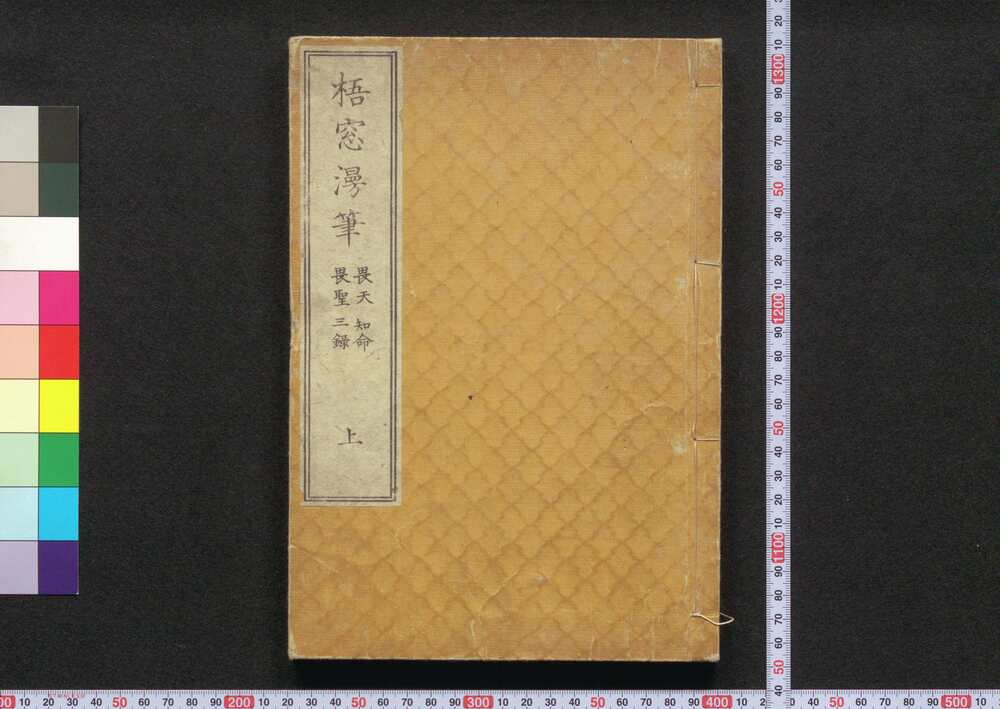 梧窓漫筆
畏天 知命
畏聖 三錄
上
20
10
1300
90
80
70
60
50
40
30
20
10
1200
90
80
70
60
50
40
30
20
10
1100
90
80
70
60
50
40
00 10 20 30 40 50 60 70 80 90 200 10 20 30 40 50 60 70 80 90 300 10 20 30 40 50 60 70 80 90 400 10 2
30 40 50 60 70 80 90 500 10